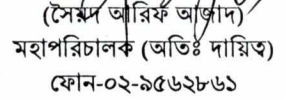 (সৈয়দ আরিফ আজাদ)
মহাপরিচালক (অতিঃ দায়িত্ব)
ফোন-০২-৯৫৬২৮৬১